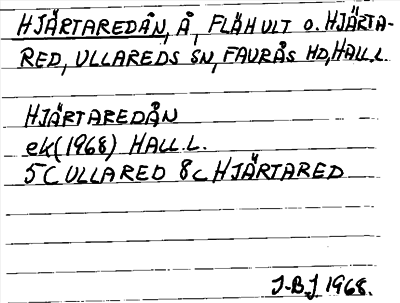 HJÄRTAREDÅN, Å, FLÄHULT O. HJÄRTA-
RED, ULLAREDS SN, FAURÅS HD, HALL.L.
HJÄRTAREDÅN
ek(1968) HALL.L.
5C ULLARED 8c HJÄRTARED
J-BJ 1968.